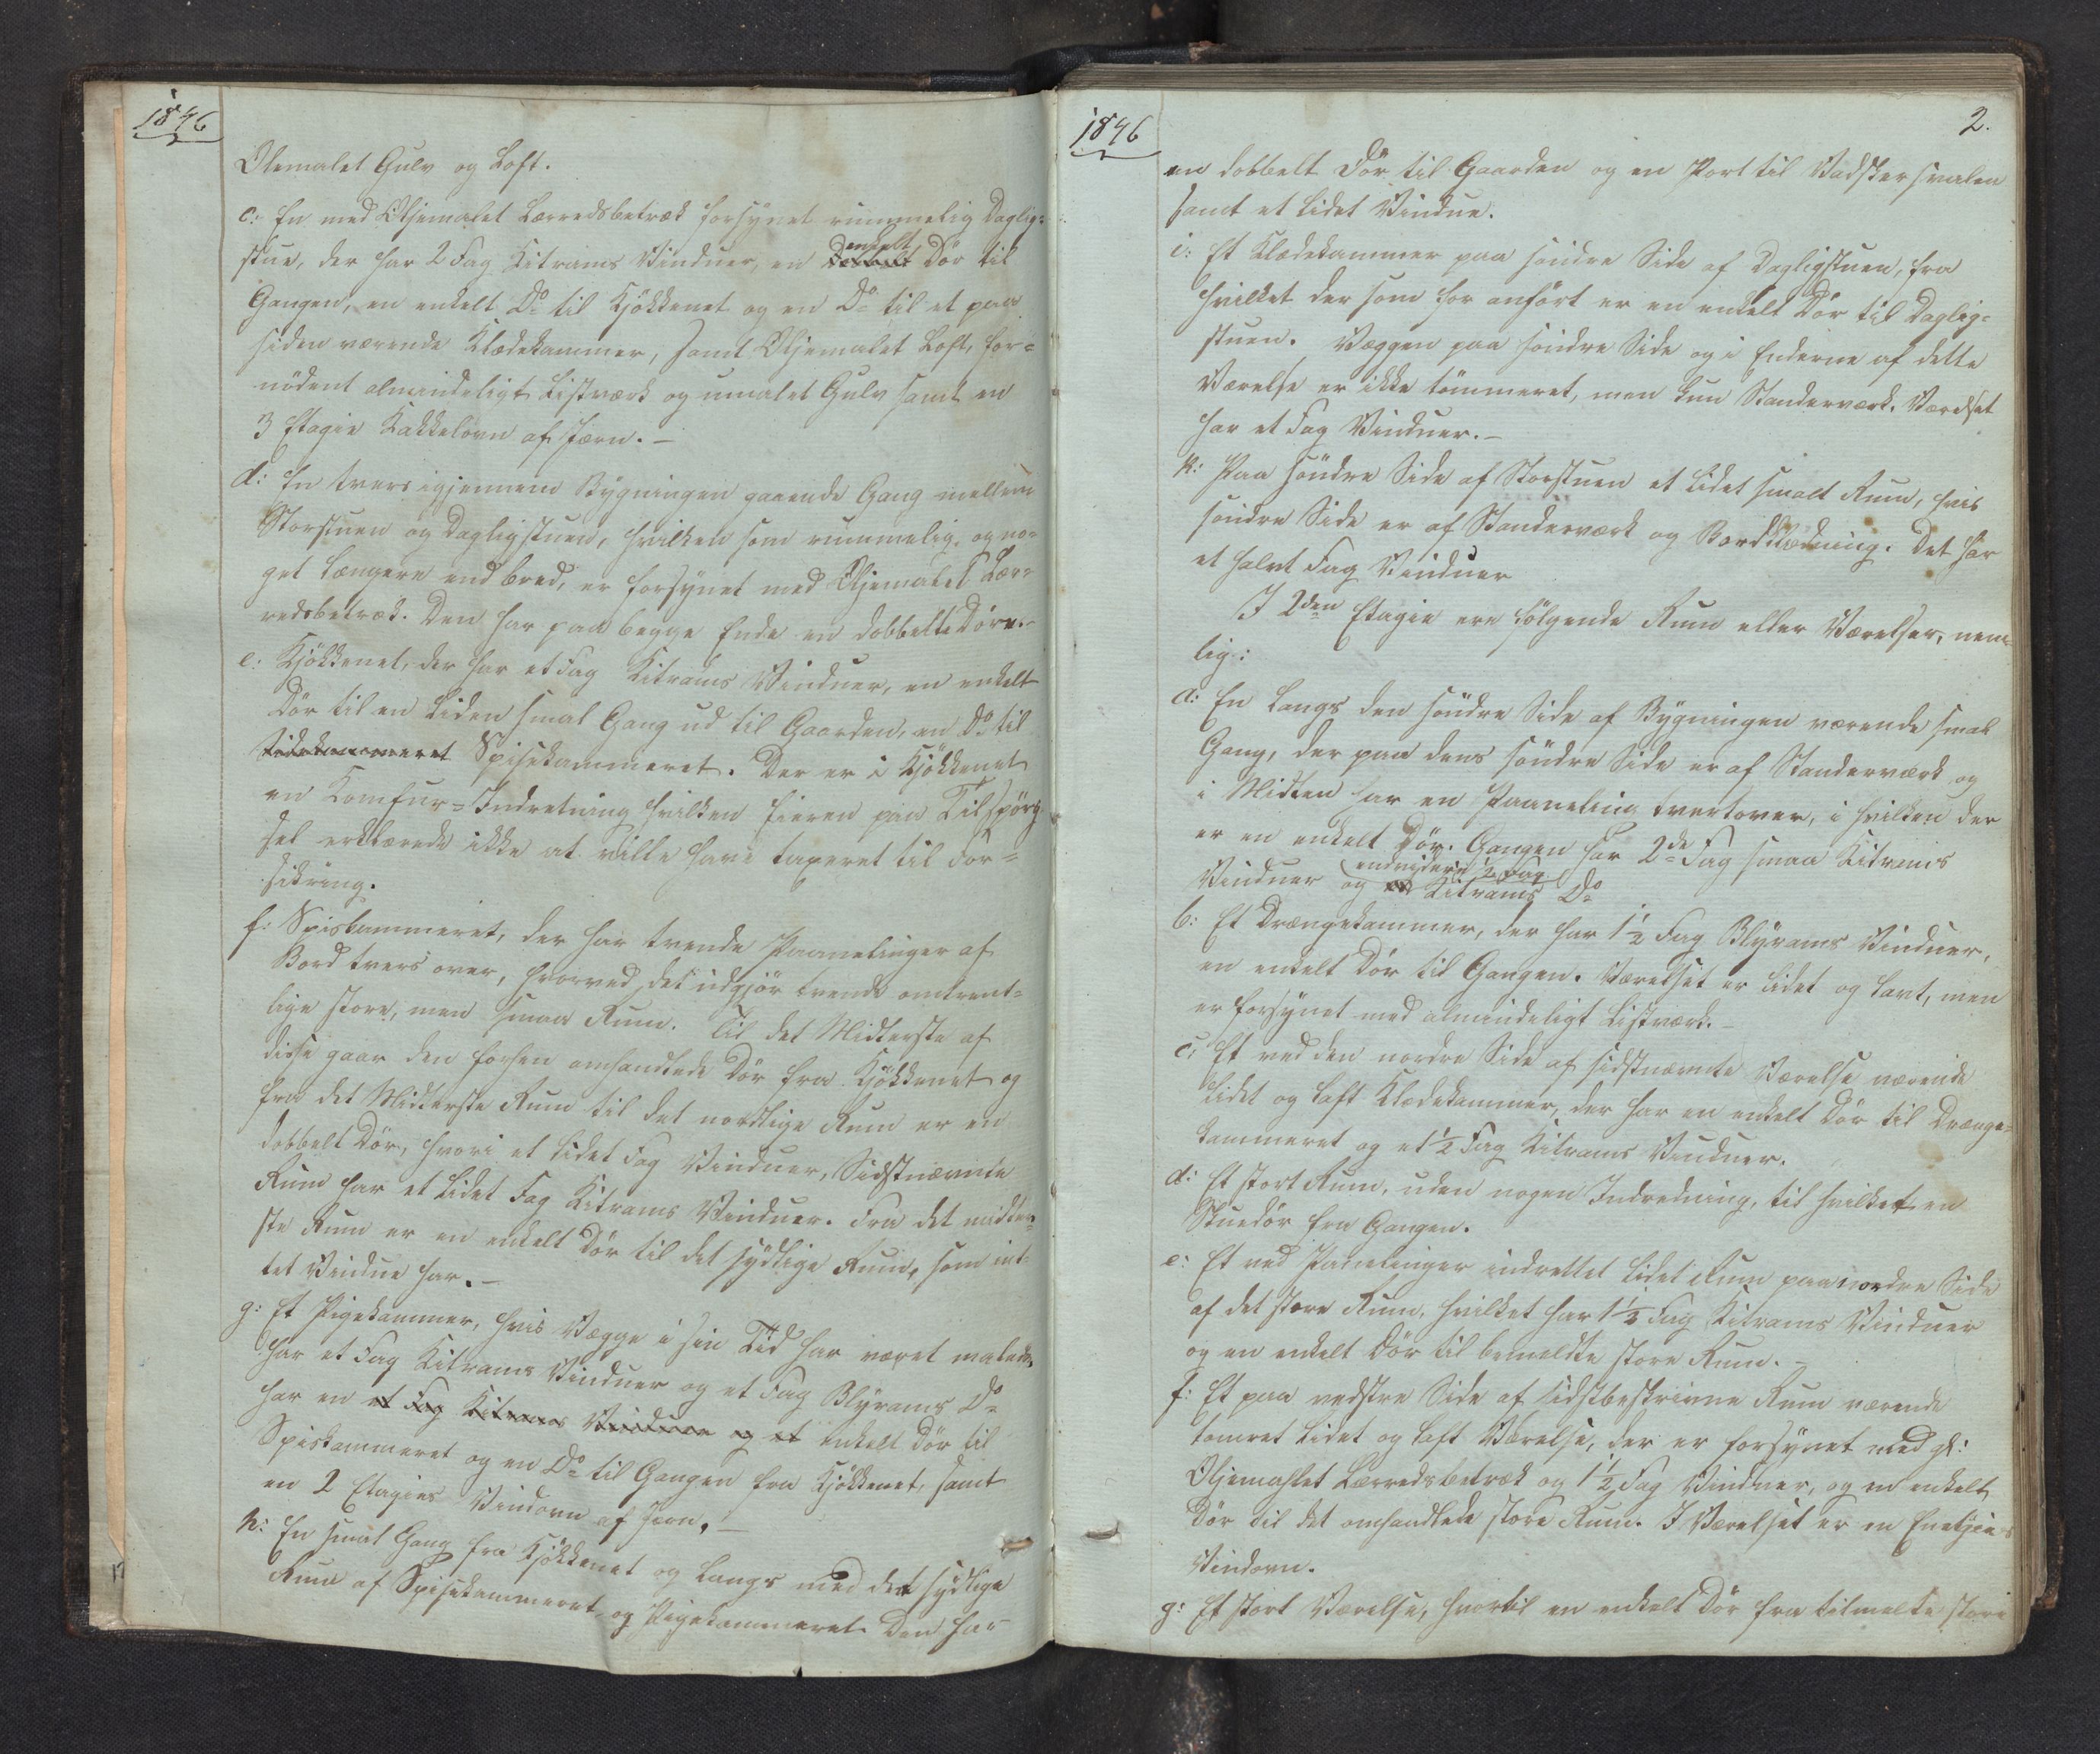 1846
Oliemalet Gulv og Loft.
c: En med Oljemalet Lærredsbetræk forsynet rummelig Daglig=
stue, der har 2 Fag Kitrams Vinduer, en dobbelt enkelt Dör til
Gangen, en enkelt Do til Kjökkenet og en Do til et paa
siden værende Klædekammer, samt Oljemalet Loft, for=
nödent almindeligt Listværk og umalet Gulv samt en
3 Etagie Kakkelovn af Jærn. -
d: En tvers igjennem Bygningen gaaende Gang mellem
Storstuen og Dagligstuen, hvilken som rummelig, og no=
get længere end bred, er forsynet med Oljemalet Lær=
redsbetræk. Den har paa begge Ende en dobbelt Döre. -
e: Kjökkenet, der har et Fag Kitrams Vinduer, en enkelt
Dör til en liden smal Gang ud til Gaarden, en Do til
Sidekammeret Spisekammeret. Der er i Kjökkenet
en Komfur=Indretning hvilken Eieren paa Tilspörg
sel erklærede ikke at ville have taxeret til For=
sikring.
f: Spiskammeret, der har tvende Paanelinger af
Bord tvers over, hvorved det udgjör trende omtrent=
lige store, men smaa Rum. Til det Midterste af
disse gaar den forhen omhandlede Dör fra Kjökkenet og
fra det Midterste Rum til det nordlige Rum er en
dobbelt Dör, hvori et lidet Fag Vinduer, Sidstnævnte
Rum har et lidet Fag Kitrams Vinduer. Fra det midter=
ste Rum er en enkelt Dör til det sydlige Rum, som in=
tet Vindue har. -
g: Et Pigekammer, hvis Vægge i sin Tid har været malede,
har et Fag Kitrams Vinduer og et Fag Blyrams Do
har en et Fag Kitrams Vinduer og et enkelt Dör til
Spiskammeret og en Do til Gangen fra Kjökkenet, samt
en 2 Etagies Vindovn af Jern. -
h: En smal Gang fra Kjökkenet og langs med det sydlige
Rum af Spisekammeret og Pigekammeret. Den har
1846
2.
en dobbelt Dör til Gaarden og en Port til Vadskersvalen
samt et lidet Vindue.
i: Et Klædekammer paa söndre Side af Dagligstuen, fra
hvilket der som for anfört er en enkelt Dör til Daglig=
stuen. Væggen paa söndre Side og i Enderne af dette
Værelse er ikke tömmeret, men kun Standerværk. Værelset
har et Fag Vinduer. -
k: Paa söndre Side af Storstuen et lidet smalt Rum, hvis
söndre Side er af Standerværk og Bordklædning. Det har
et halvt Fag Vinduer
I 2den Etagie ere fölgende Rum eller Værelser, nem=
lig:
a: En langs den söndre Side af Bygningen værende smal
Gang, der paa dens söndre Side er af Standerværk og
i Midten har en Paaneling tvertover, i hvilken der
er en enkelt Dör. Gangen har 2de Fag smaa Kitrams
Vinduer og endvidere ½ Fag Kitrams Do
b: Et Drængekammer, der har 1½ Fag Blyrams Vinduer,
en enkelt Dör til Gangen. Værelset er lidet og lavt, men
er forsynet med almindeligt Listværk. -
c: Et ved den nordre Side af sidstnævnte Værelse værende
lidet og laft Klædekammer, der har en enkelt Dör til Drænge=
kammeret og et ½ Fag Kitrams Vinduer.
d: Et stort Rum, uden nogen Indredning, til hvilket en
Stuedör fra Gangen.
e: Et ved Panelinger indrettet lidet Rum paa nordre Side
af det store Rum, hvilket har 1½ Fag Kitrams Vinduer
og en enkelt Dör til bemeldte store Rum. -
f: Et paa vedstre Side af sidstbeskrivne Rum værende
tömret lidet og laft Værelse, der er forsynet med gl:
Oljemahlet Lærredsbetræk og 1½ Fag Vinduer, og en enkelt
Dör til det omhandlede store Rum. I Værelset er en Enetjeies
Vindovn.
g: Et stort Værelse, hvortil en enkelt Dör fra bemeldte store